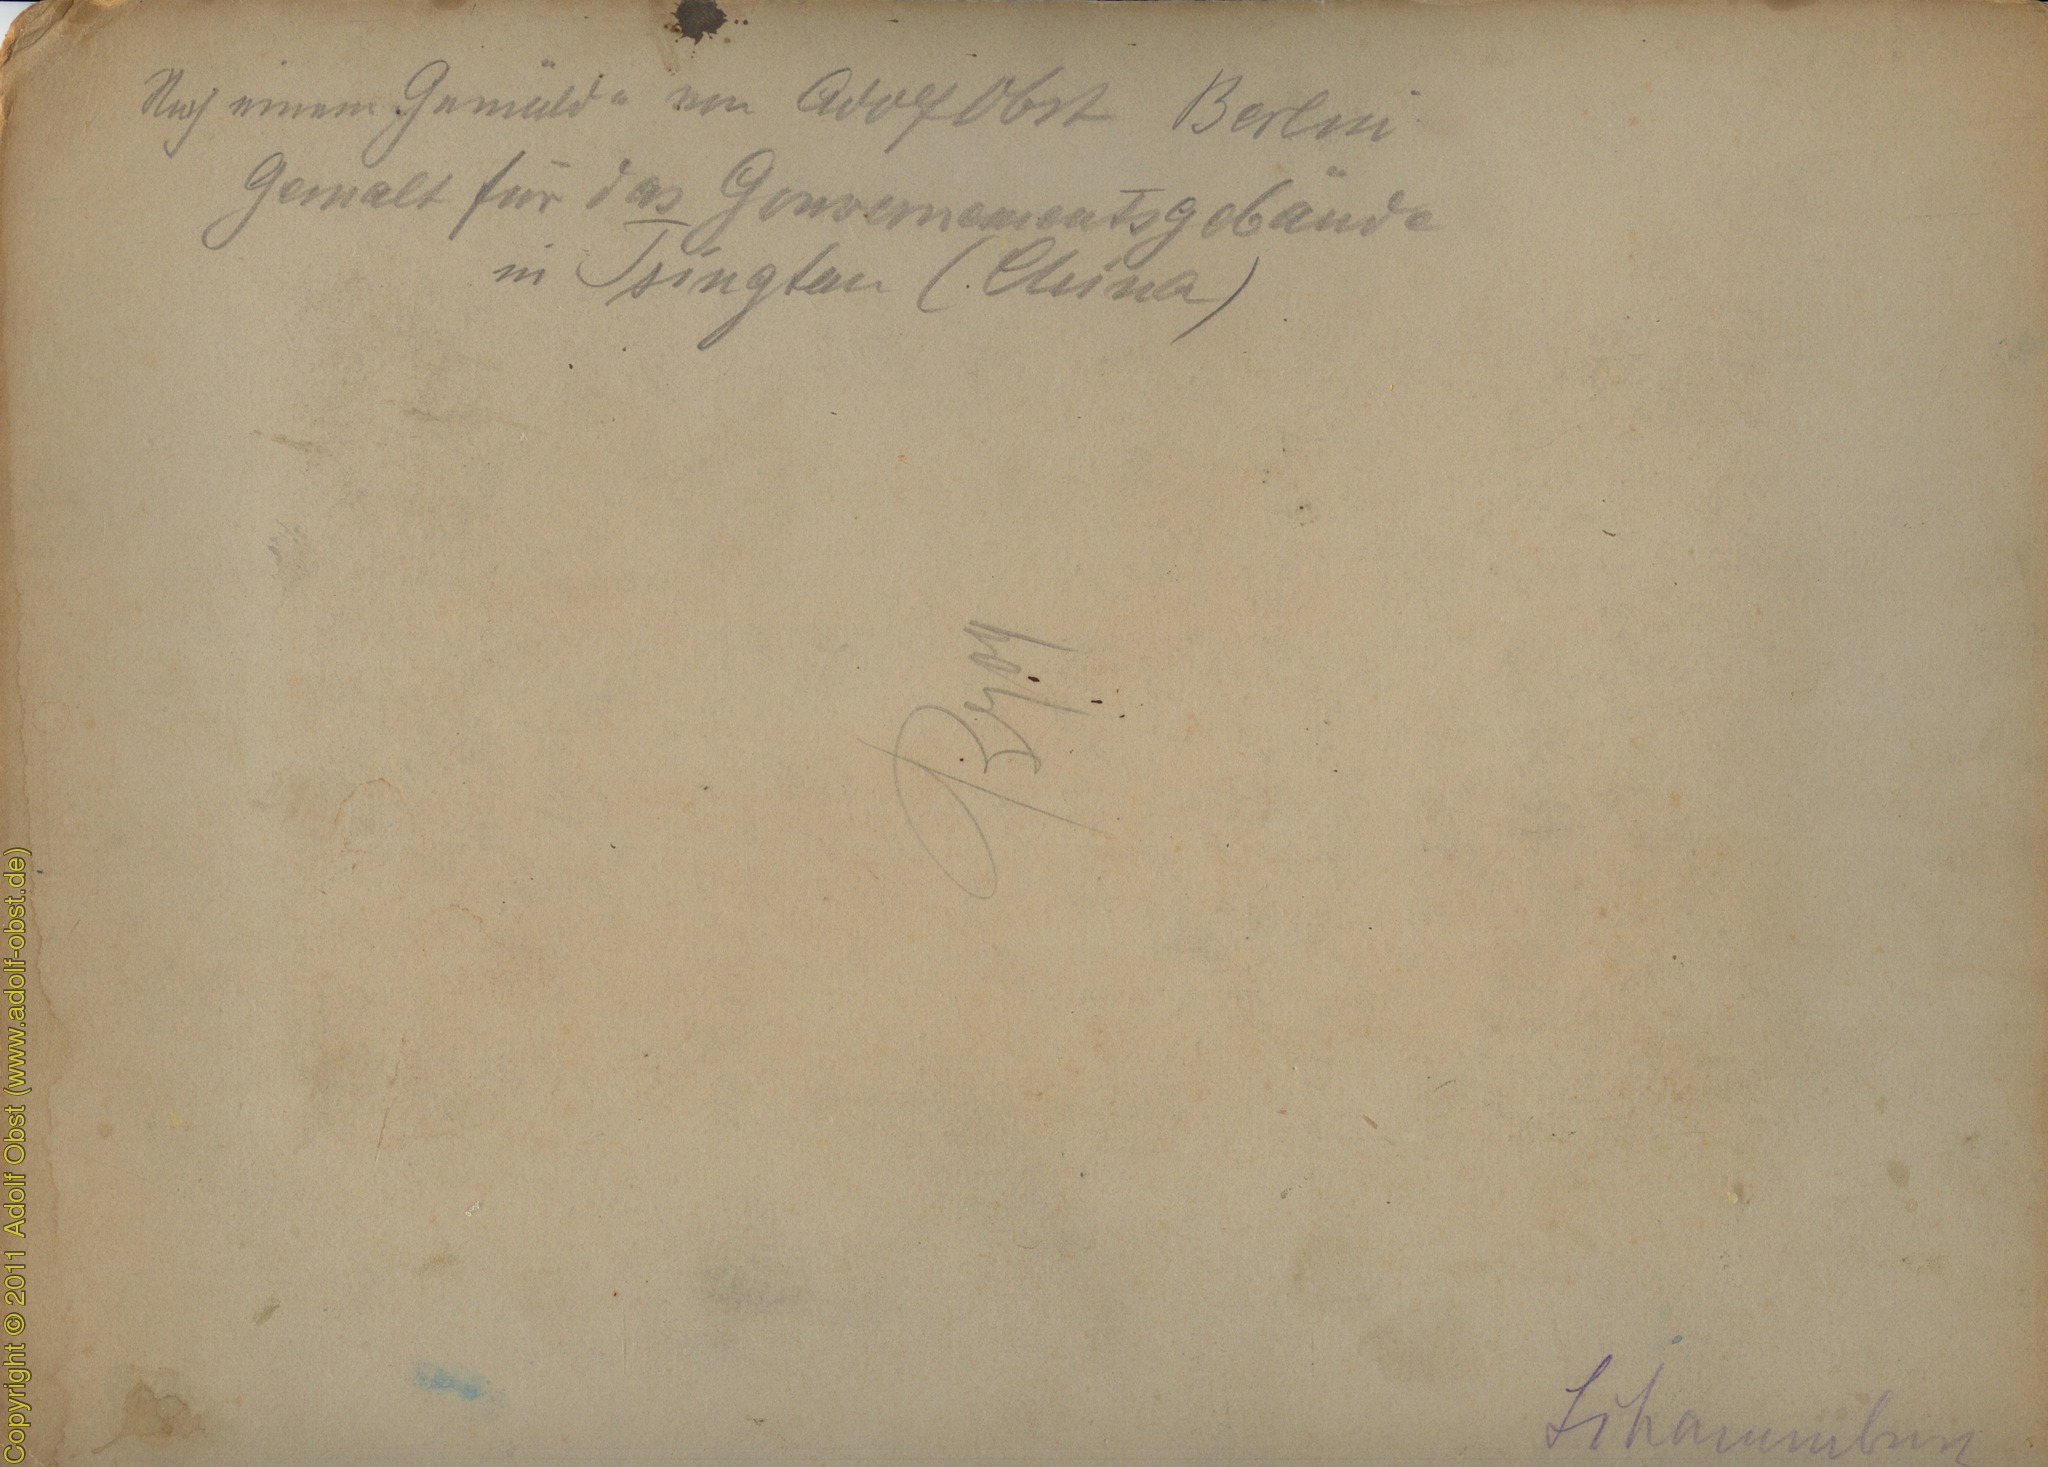 Nach einem Gemälde von Adolf Obst Berlin
Gemalt für das Gouvernementsgebäude
in Tsingtau (China)
Copyright © 2011 Adolf Obst (www.adolf-obst.de)